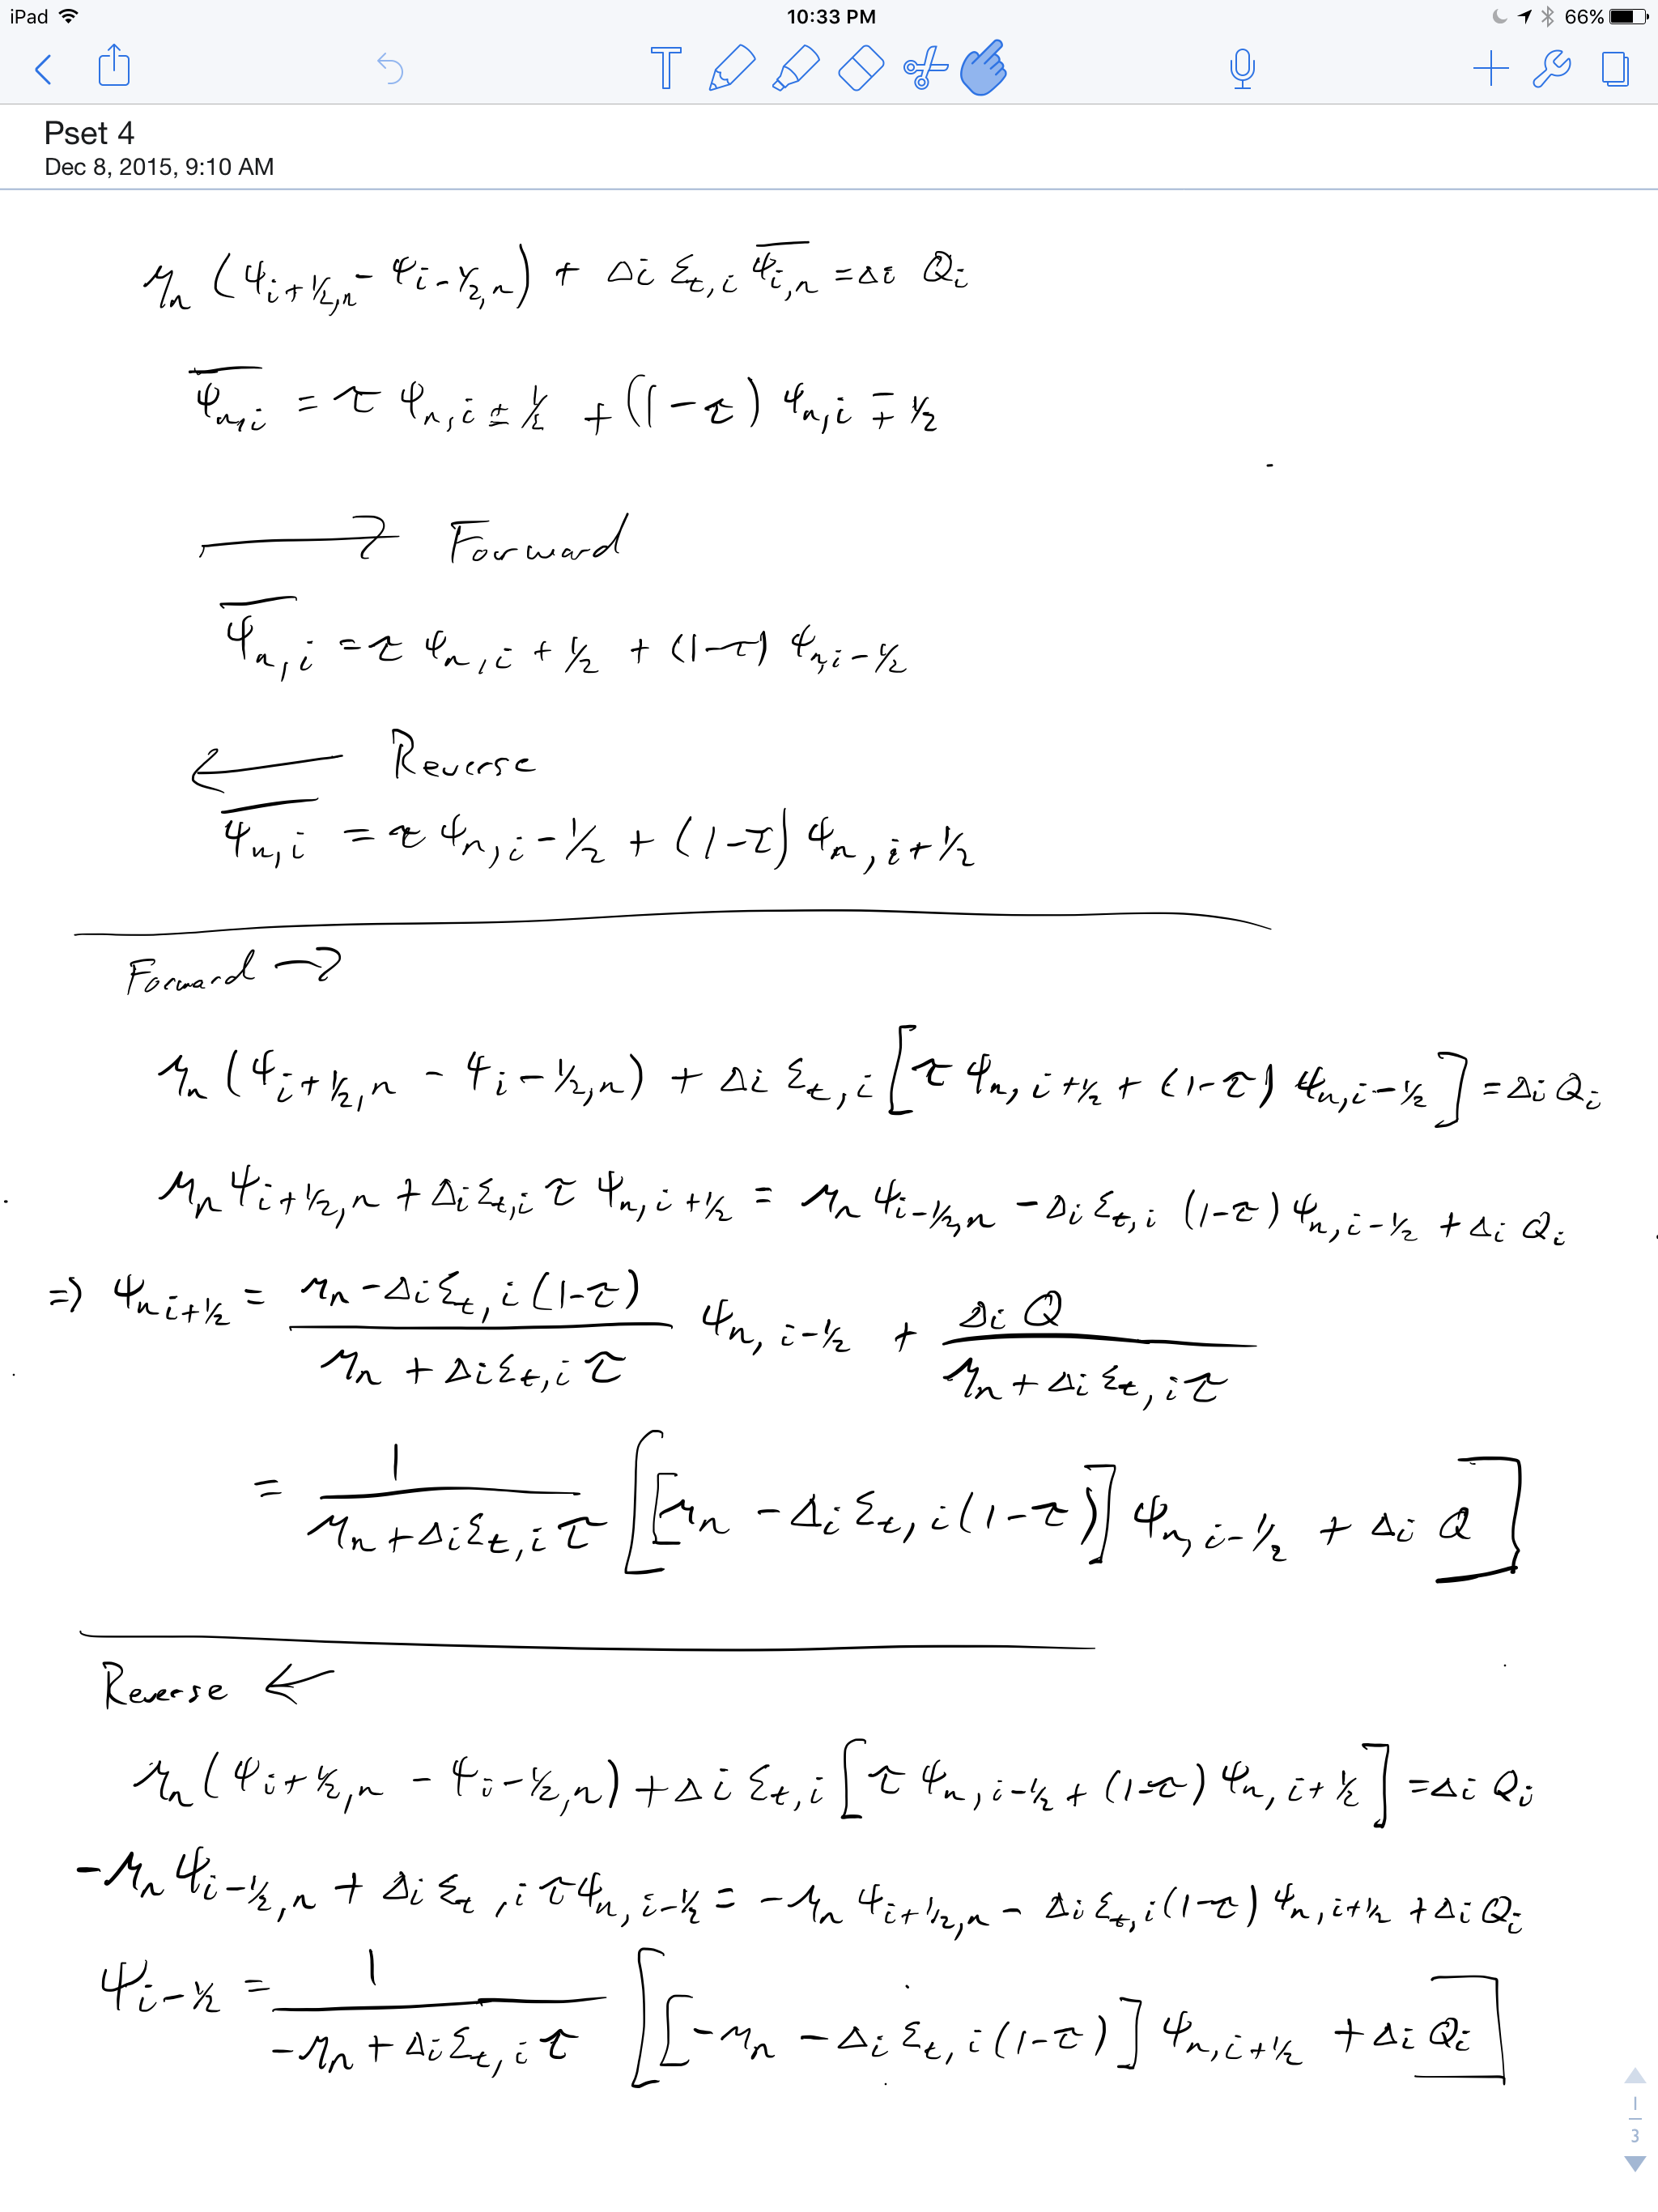 iPad 10:33 PM 66%
T
Pset 4
Dec 8, 2015, 9:10 AM
μn (ψi+1/2,n − ψi−1/2,n) + Δi Σt,i ψ̅i,n = Δi Qi
ψ̅n,i = τ ψn,i ± 1/2 + (1−τ) ψn,i ∓ 1/2
→ Forward
ψ̅n,i = τ ψn,i+1/2 + (1−τ) ψn,i−1/2
← Reverse
ψ̅n,i = τ ψn,i−1/2 + (1−τ) ψn,i+1/2
Forward →
μn (ψi+1/2,n − ψi−1/2,n) + Δi Σt,i [τ ψn,i+1/2 + (1−τ) ψn,i−1/2] = Δi Qi
μn ψi+1/2,n + Δi Σt,i τ ψn,i+1/2 = μn ψi−1/2,n − Δi Σt,i (1−τ) ψn,i−1/2 + Δi Qi
⇒ ψn i+1/2 = (μn − Δi Σt,i (1−τ)) / (μn + Δi Σt,i τ) ψn,i−1/2 + (Δi Q) / (μn + Δi Σt,i τ)
= 1 / (μn + Δi Σt,i τ) [[μn − Δi Σt,i (1−τ)] ψn,i−1/2 + Δi Q]
Reverse ←
μn (ψi+1/2,n − ψi−1/2,n) + Δi Σt,i [τ ψn,i−1/2 + (1−τ) ψn,i+1/2] = Δi Qi
−μn ψi−1/2,n + Δi Σt,i τ ψn,i−1/2 = −μn ψi+1/2,n − Δi Σt,i (1−τ) ψn,i+1/2 + Δi Qi
ψi−1/2 = 1 / (−μn + Δi Σt,i τ) [[−μn − Δi Σt,i (1−τ)] ψn,i+1/2 + Δi Qi]
1
3